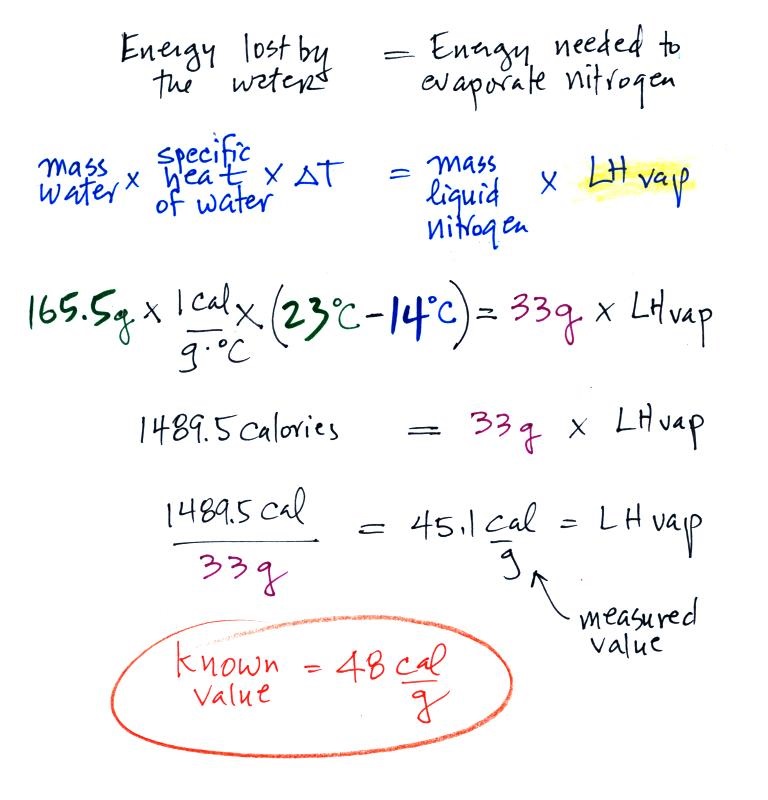 Energy lost by = Energy needed to
the water evaporate nitrogen
mass water × specific heat of water × ΔT = mass liquid nitrogen × LH vap
165.5g × 1 cal/g·°C × (23°C - 14°C) = 33g × LH vap
1489.5 calories = 33g × LH vap
1489.5 cal/33g = 45.1 cal/g = LH vap
measured
value
known value = 48 cal/g